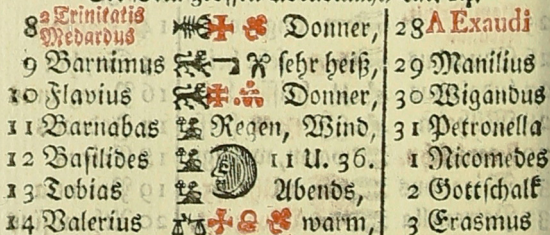 8 2 Trinitatis Medardus Donner, 28 A Exaudi
9 Barnimus sehr heiß, 29 Manilius
10 Flavius Donner, 30 Wigandus
11 Barnabas Regen, Wind, 31 Petronella
12 Basilides 11 U. 36. 1 Nicomedes
13 Tobias Abends, 2 Gottschalk
14 Valerius warm, 3 Erasmus